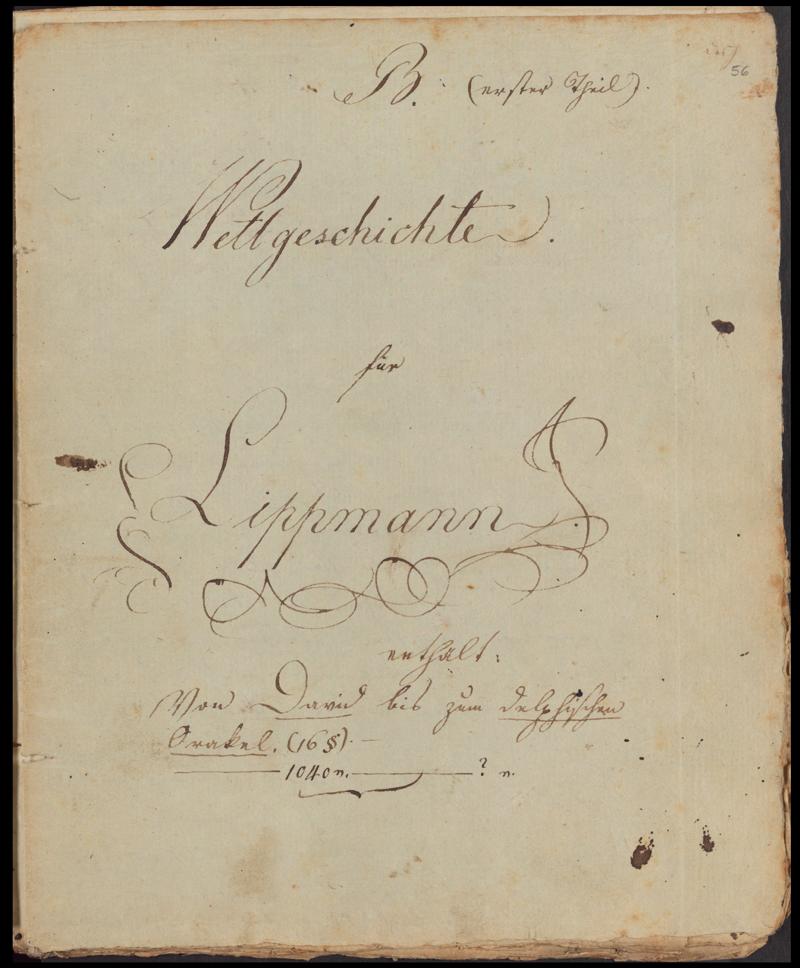 56
B. (erster Theil).
Weltgeschichte.
für
Lippmann
enthält:
Von David bis zum delphischen
Orakel. (16 §).
1040 v. ? v.